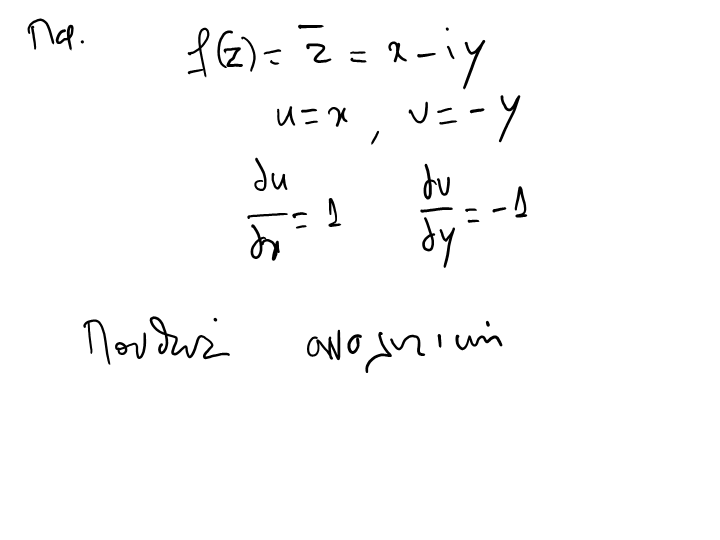 Πα.
f(z) = z̅ = x - iy
u = x , v = -y
∂u/∂x = 1 ∂v/∂y = -1
Πουθενά αναλυτική